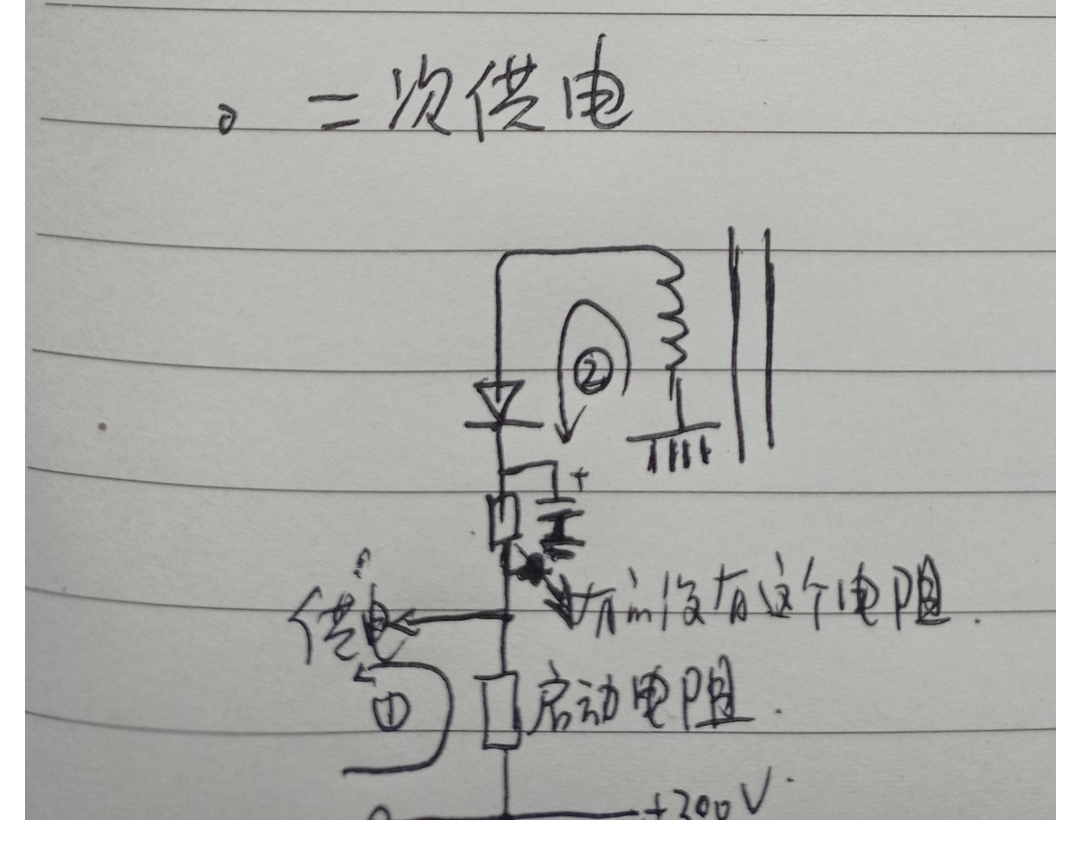 二次供电
②
+
有的没有这个电阻.
供电
①
启动电阻.
+300V